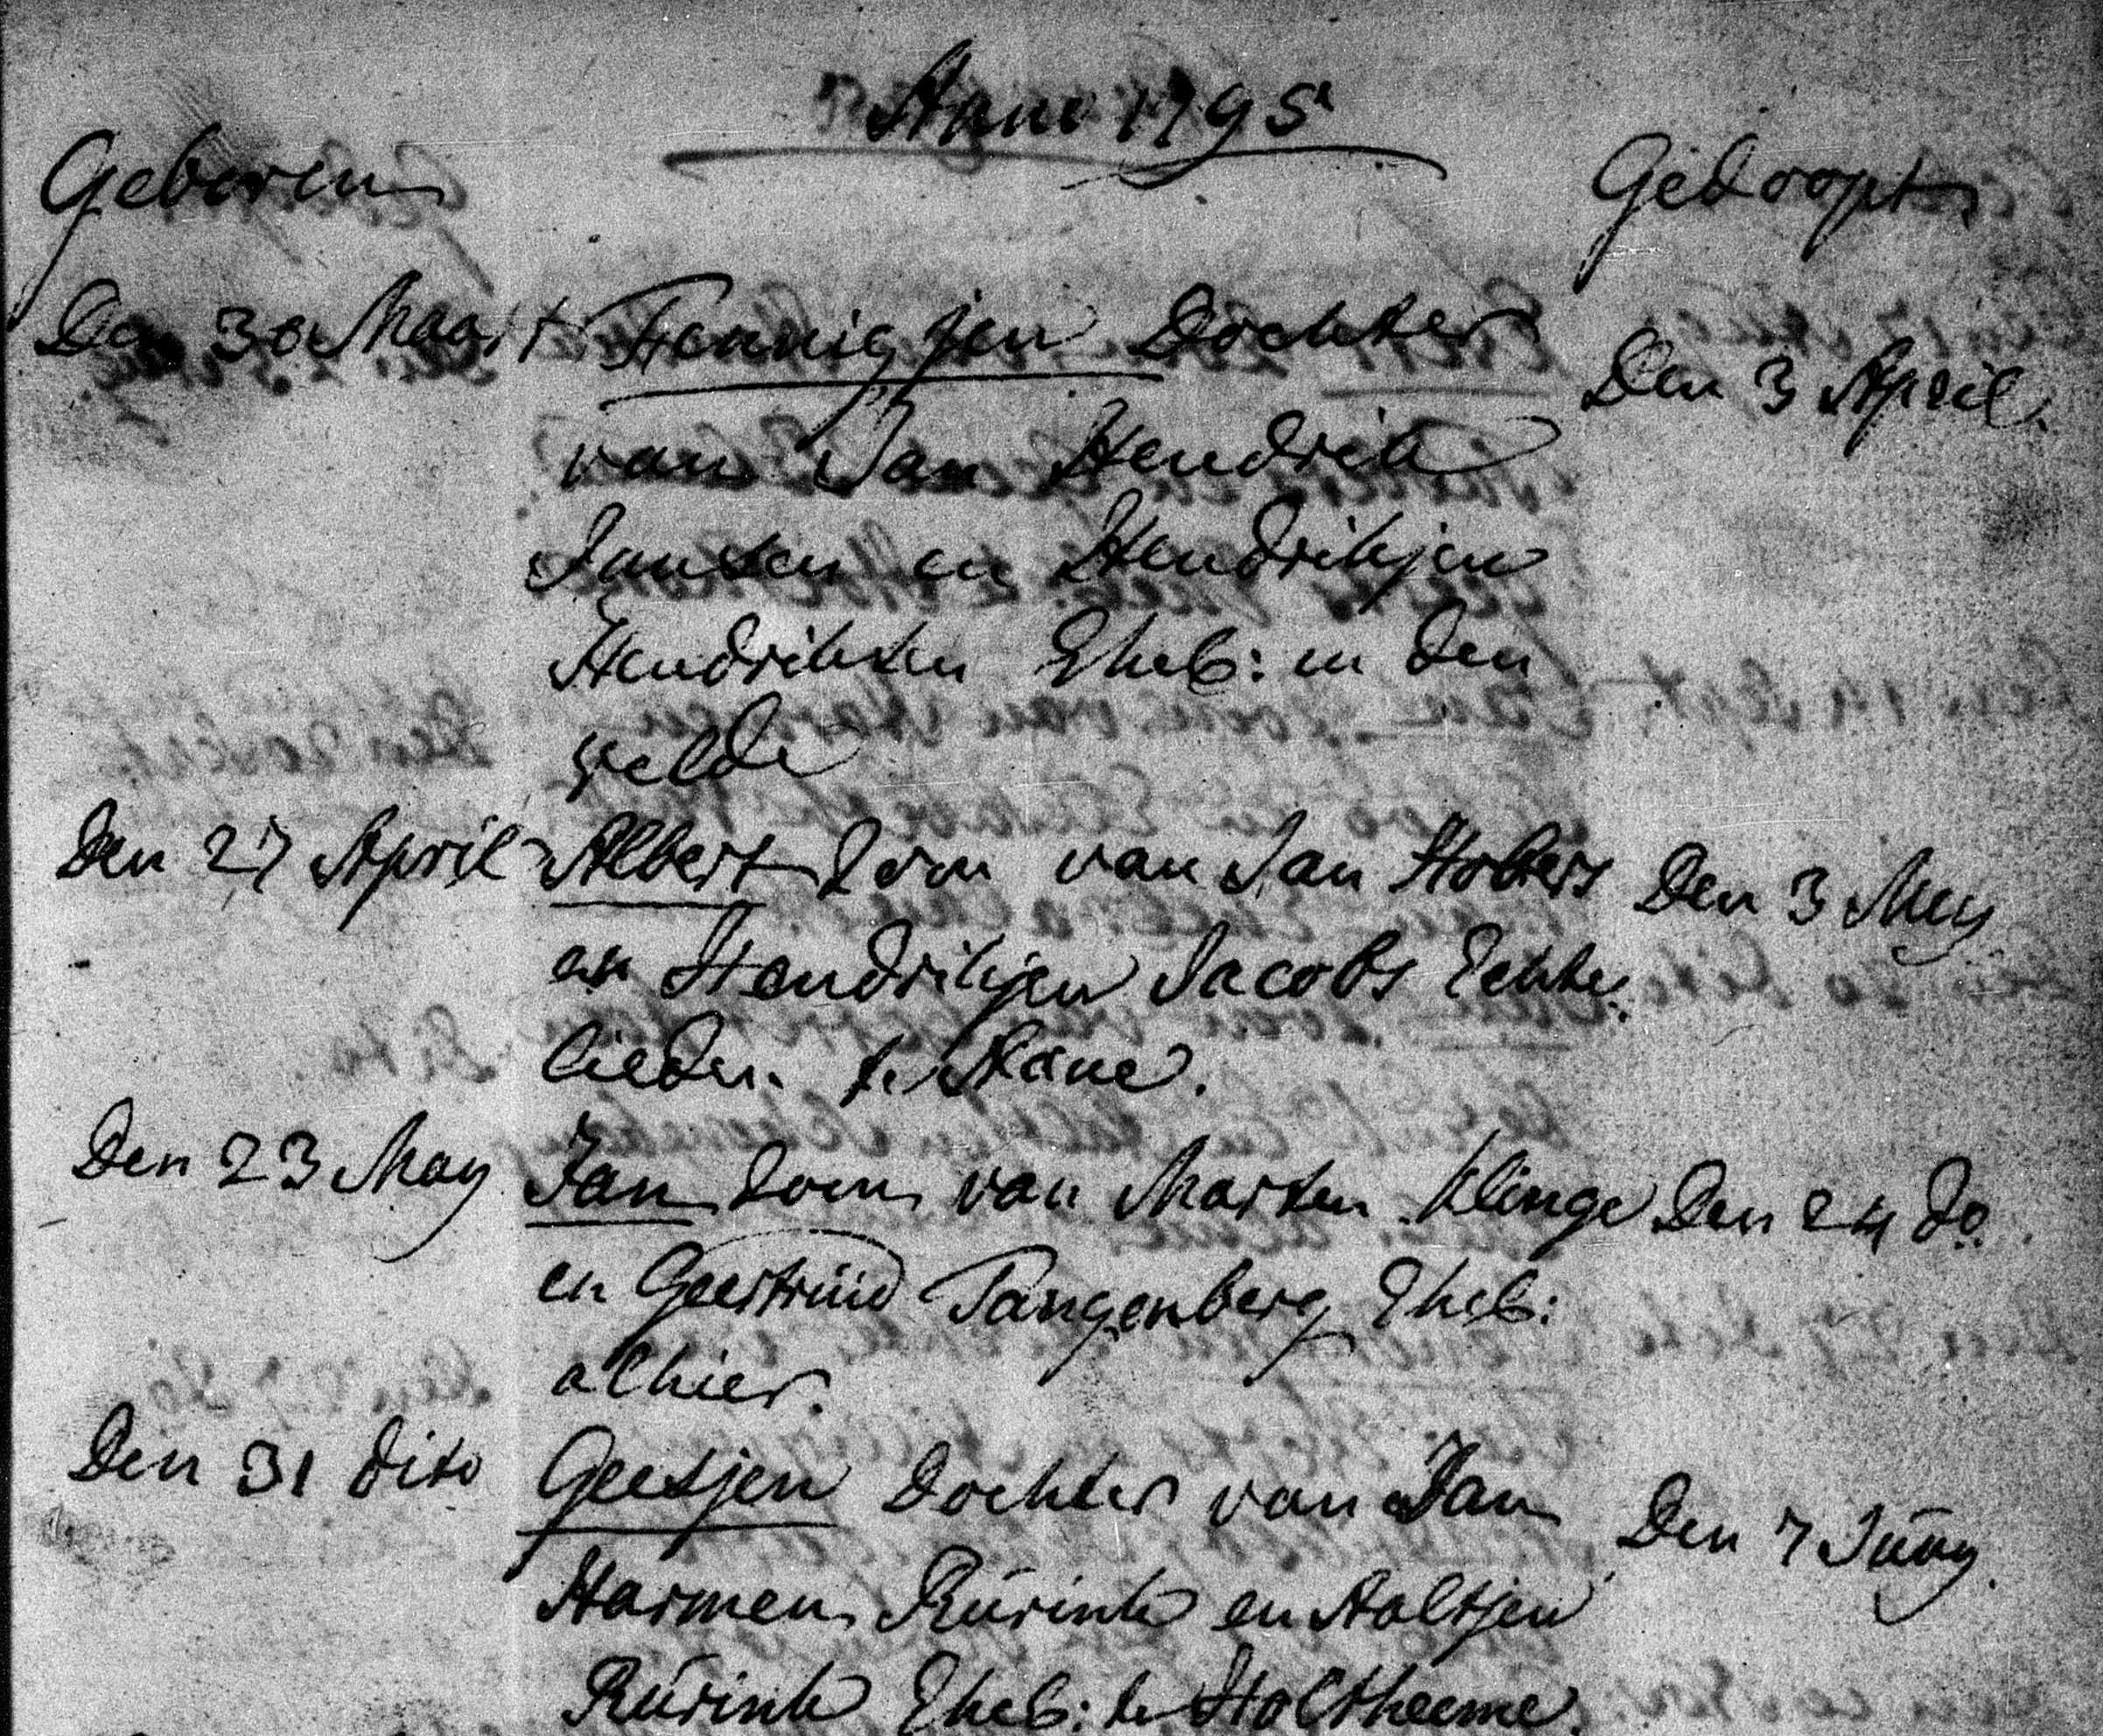 Anno 1795
Geboren
Gedoopt
Den 30 Maart Fennigjen Dochter
Den 3 April.
van Jan Hendrik
Jansen en Hendrikjen
Hendriksen Eheb: in den
velde
Den 27 April Albert Soon van Jan Den 3 Mey
en Hendrikjen Jacobs Echte:
lieden. te Ane.
Den 23 May Jan Soon van Marten Klinge Den 24 do.
en Geertruid Pangenberg Eheb:
alhier.
Den 31 dito Geesjen Dochter van Jan
Den 7 Juny.
Harmen Rúrink en Aaltjen
Rúrink Eheb: te Holtheeme.